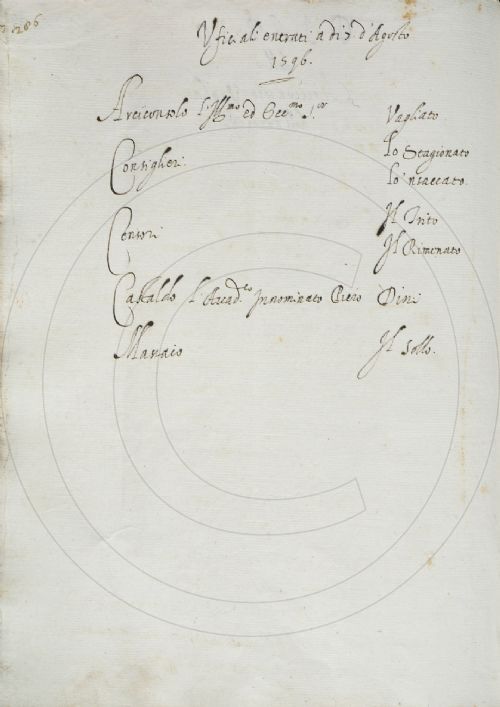 206
Ufiziali entrati a di 7 d'Agosto
1596.
Arciconsolo l'Ill.mo ed Ecc.mo S.or Vagliato
Consiglieri Lo Stagionato
Lo 'nsaccato.
Censori Il Trito
Il Rimenato
Castaldo l'Accad.co Innominato Piero Dini
Massaio Il Sollo.